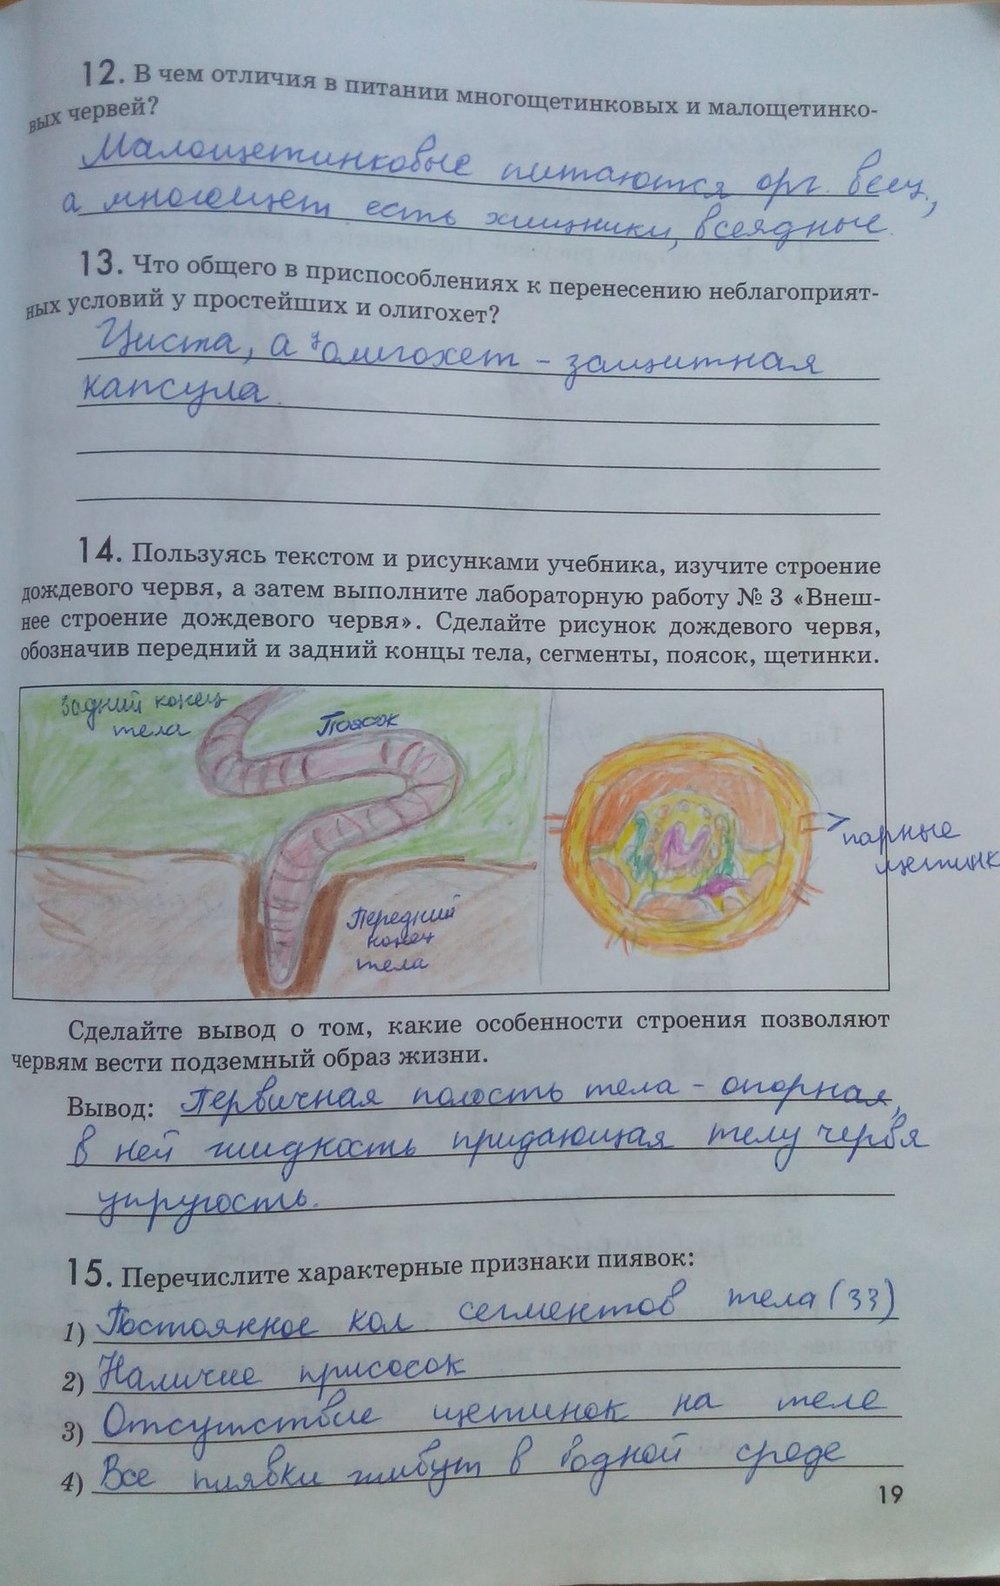 12. В чем отличия в питании многощетинковых и малощетинко-
вых червей?
Малощетинковые питаются орг. вещ.,
а многощет есть хищники, всеядные.
13. Что общего в приспособлениях к перенесению неблагоприят-
ных условий у простейших и олигохет?
Циста, а у олигохет - защитная
капсула.
14. Пользуясь текстом и рисунками учебника, изучите строение
дождевого червя, а затем выполните лабораторную работу № 3 «Внеш-
нее строение дождевого червя». Сделайте рисунок дождевого червя,
обозначив передний и задний концы тела, сегменты, поясок, щетинки.
Задний конец
тела
Поясок
Передний
конец
тела
парные
щетинк
Сделайте вывод о том, какие особенности строения позволяют
червям вести подземный образ жизни.
Вывод: Первичная полость тела - опорная,
в ней жидкость придающая телу червя
упругость.
15. Перечислите характерные признаки пиявок:
1) Постоянное кол. сегментов тела (33)
2) Наличие присосок
3) Отсутствие щетинок на теле
4) Все пиявки живут в водной среде
19